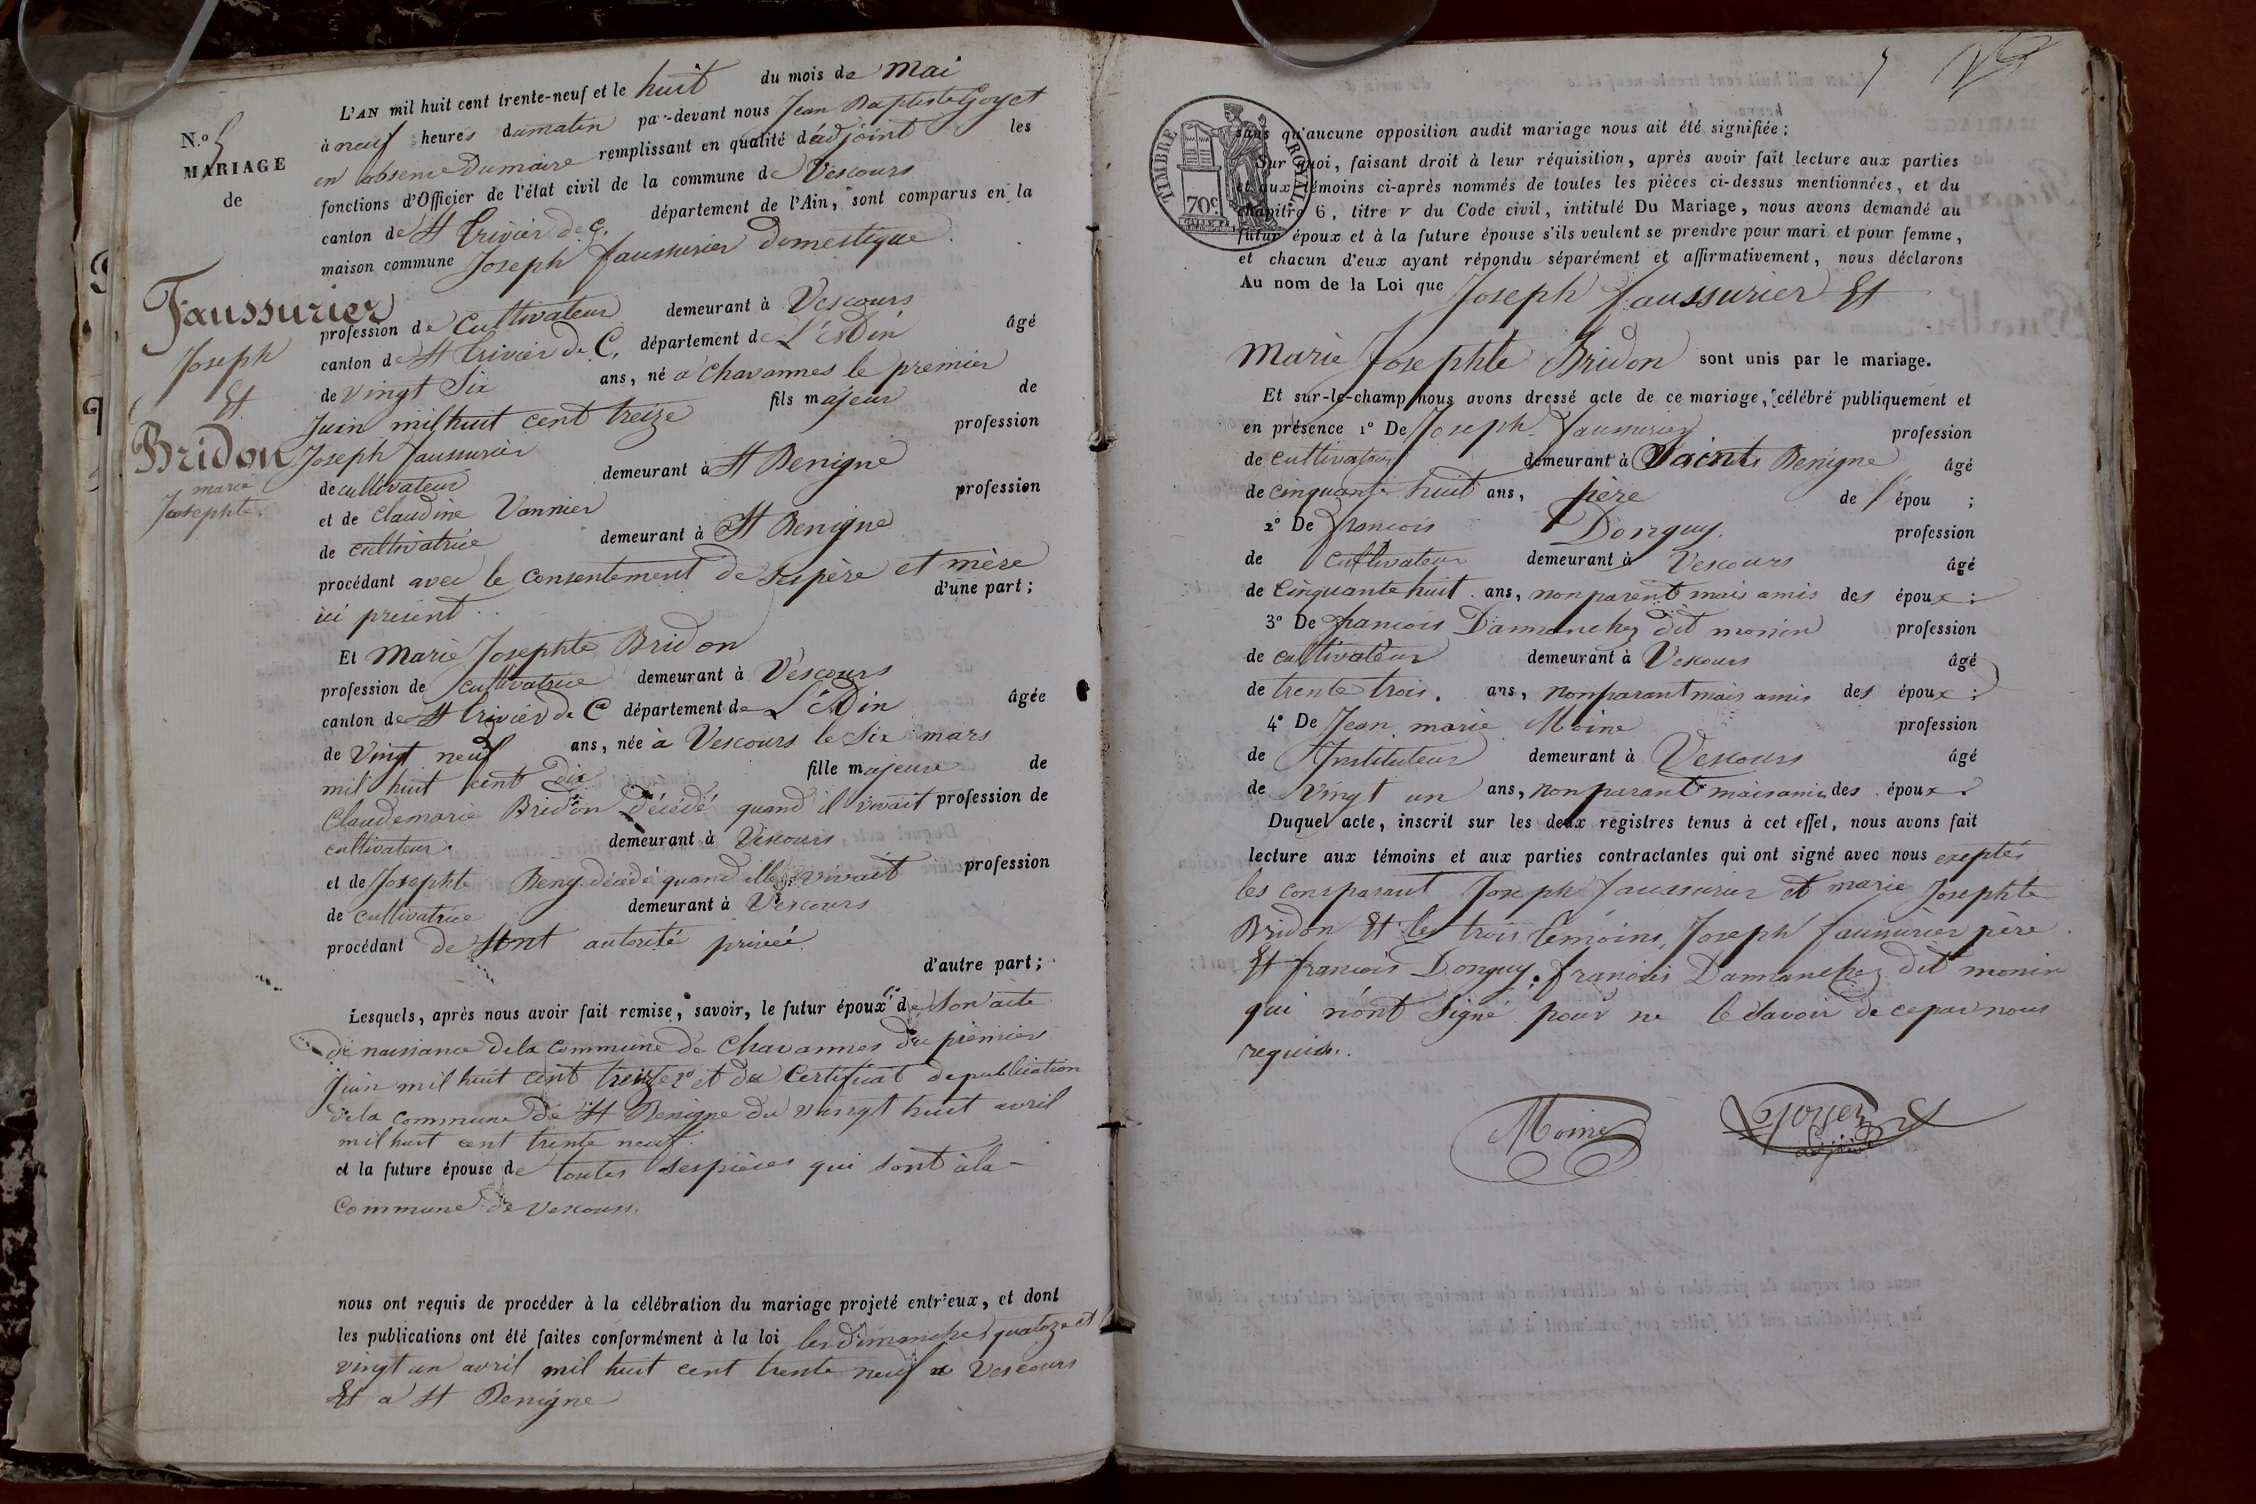 N.o 5
MARIAGE
de
Faussurier
Joseph
Et
Bridon
marie
Josephte.
L'AN mil huit cent trente-neuf et le huit du mois de Mai
à neuf heures du matin par-devant nous Jean Baptiste Goyet
en absence Du maire remplissant en qualité d'adjoint les
fonctions d'Officier de l'état civil de la commune de Vescours
canton de St Trivier de C. département de l'Ain, sont comparus en la
maison commune Joseph faussurier domestique
profession de Cultivateur demeurant à Vescours
canton de St Trivier de C. département de L'Ain âgé
de vingt Six ans, né à Chavannes le premier
Juin mil huit cent treize fils majeur de
Joseph faussurier profession
de cultivateur demeurant à St Benigne
et de Claudine Vannier profession
de cultivatrice demeurant à St Benigne
procédant avec le consentement de ses père et mère
ici present d'une part;
Et Marie Josephte Bridon
profession de cultivatrice demeurant à Vescours
canton de St Trivier de C département de L'Ain âgée
de Vingt neuf ans, née à Vescours le Six mars
mil huit cent Dix fille majeure de
Claudemarie Bridon Décédé quand il vivait profession de
cultivateur. demeurant à Vescours
et de Josephte Beny décédé quand elle vivait profession
de cultivatrice demeurant à Vescours
procédant de autorité privée
d'autre part;
Lesquels, après nous avoir fait remise, savoir, le futur époux 1o de Son acte
de naissance de la Commune de Chavannes du premier
Juin mil huit cent treize 2o et du Certificat de publication
de la commune de St Benigne du vingt huit avril
mil huit cent trente neuf.
et la future épouse de toutes ses pièces qui sont à la
Commune de Vescours.
nous ont requis de procéder à la célébration du mariage projeté entr'eux, et dont
les publications ont été faites conformément à la loi les dimanches quatoze et
vingt un avril mil huit cent trente neuf a Vescours
Et a St Benigne
5
TIMBRE ROYAL
70c.
sans qu'aucune opposition audit mariage nous ait été signifiée;
Sur quoi, faisant droit à leur réquisition, après avoir fait lecture aux parties
et aux témoins ci-après nommés de toutes les pièces ci-dessus mentionnées, et du
chapitre 6, titre v du Code civil, intitulé Du Mariage, nous avons demandé au
futur époux et à la future épouse s'ils veulent se prendre pour mari et pour femme,
et chacun d'eux ayant répondu séparément et affirmativement, nous déclarons
Au nom de la Loi que Joseph faussurier Et
Marie Josephte Bridon sont unis par le mariage.
Et sur-le-champ nous avons dressé acte de ce mariage, célébré publiquement et
en présence 1o De Joseph faussurier profession
de cultivateur demeurant à Saint Benigne âgé
de cinquante huit ans, père de l' épou ;
2o De francois Donguy. profession
de cultivateur demeurant à Vescours âgé
de Cinquante huit ans, non parent mais amis des époux;
3o De francois Dammanchez dit monin profession
de cultivateur demeurant à Vescours âgé
de trente trois. ans, non parant mais amis des époux;
4o De Jean marie Moine profession
de Instituteur demeurant à Vescours âgé
de Vingt un ans, non parant mais amis des époux.
Duquel acte, inscrit sur les deux registres tenus à cet effet, nous avons fait
lecture aux témoins et aux parties contractantes qui ont signé avec nous exeptés
les comparant Joseph faussurier et marie Josephte
Bridon Et les trois témoins, Joseph faussurier père
Et francois Donguy, francois Dammanchez dit monin
qui n'ont Signé pour ne le savoir de ce par nous
requis.
Moine Goyet
adjoint